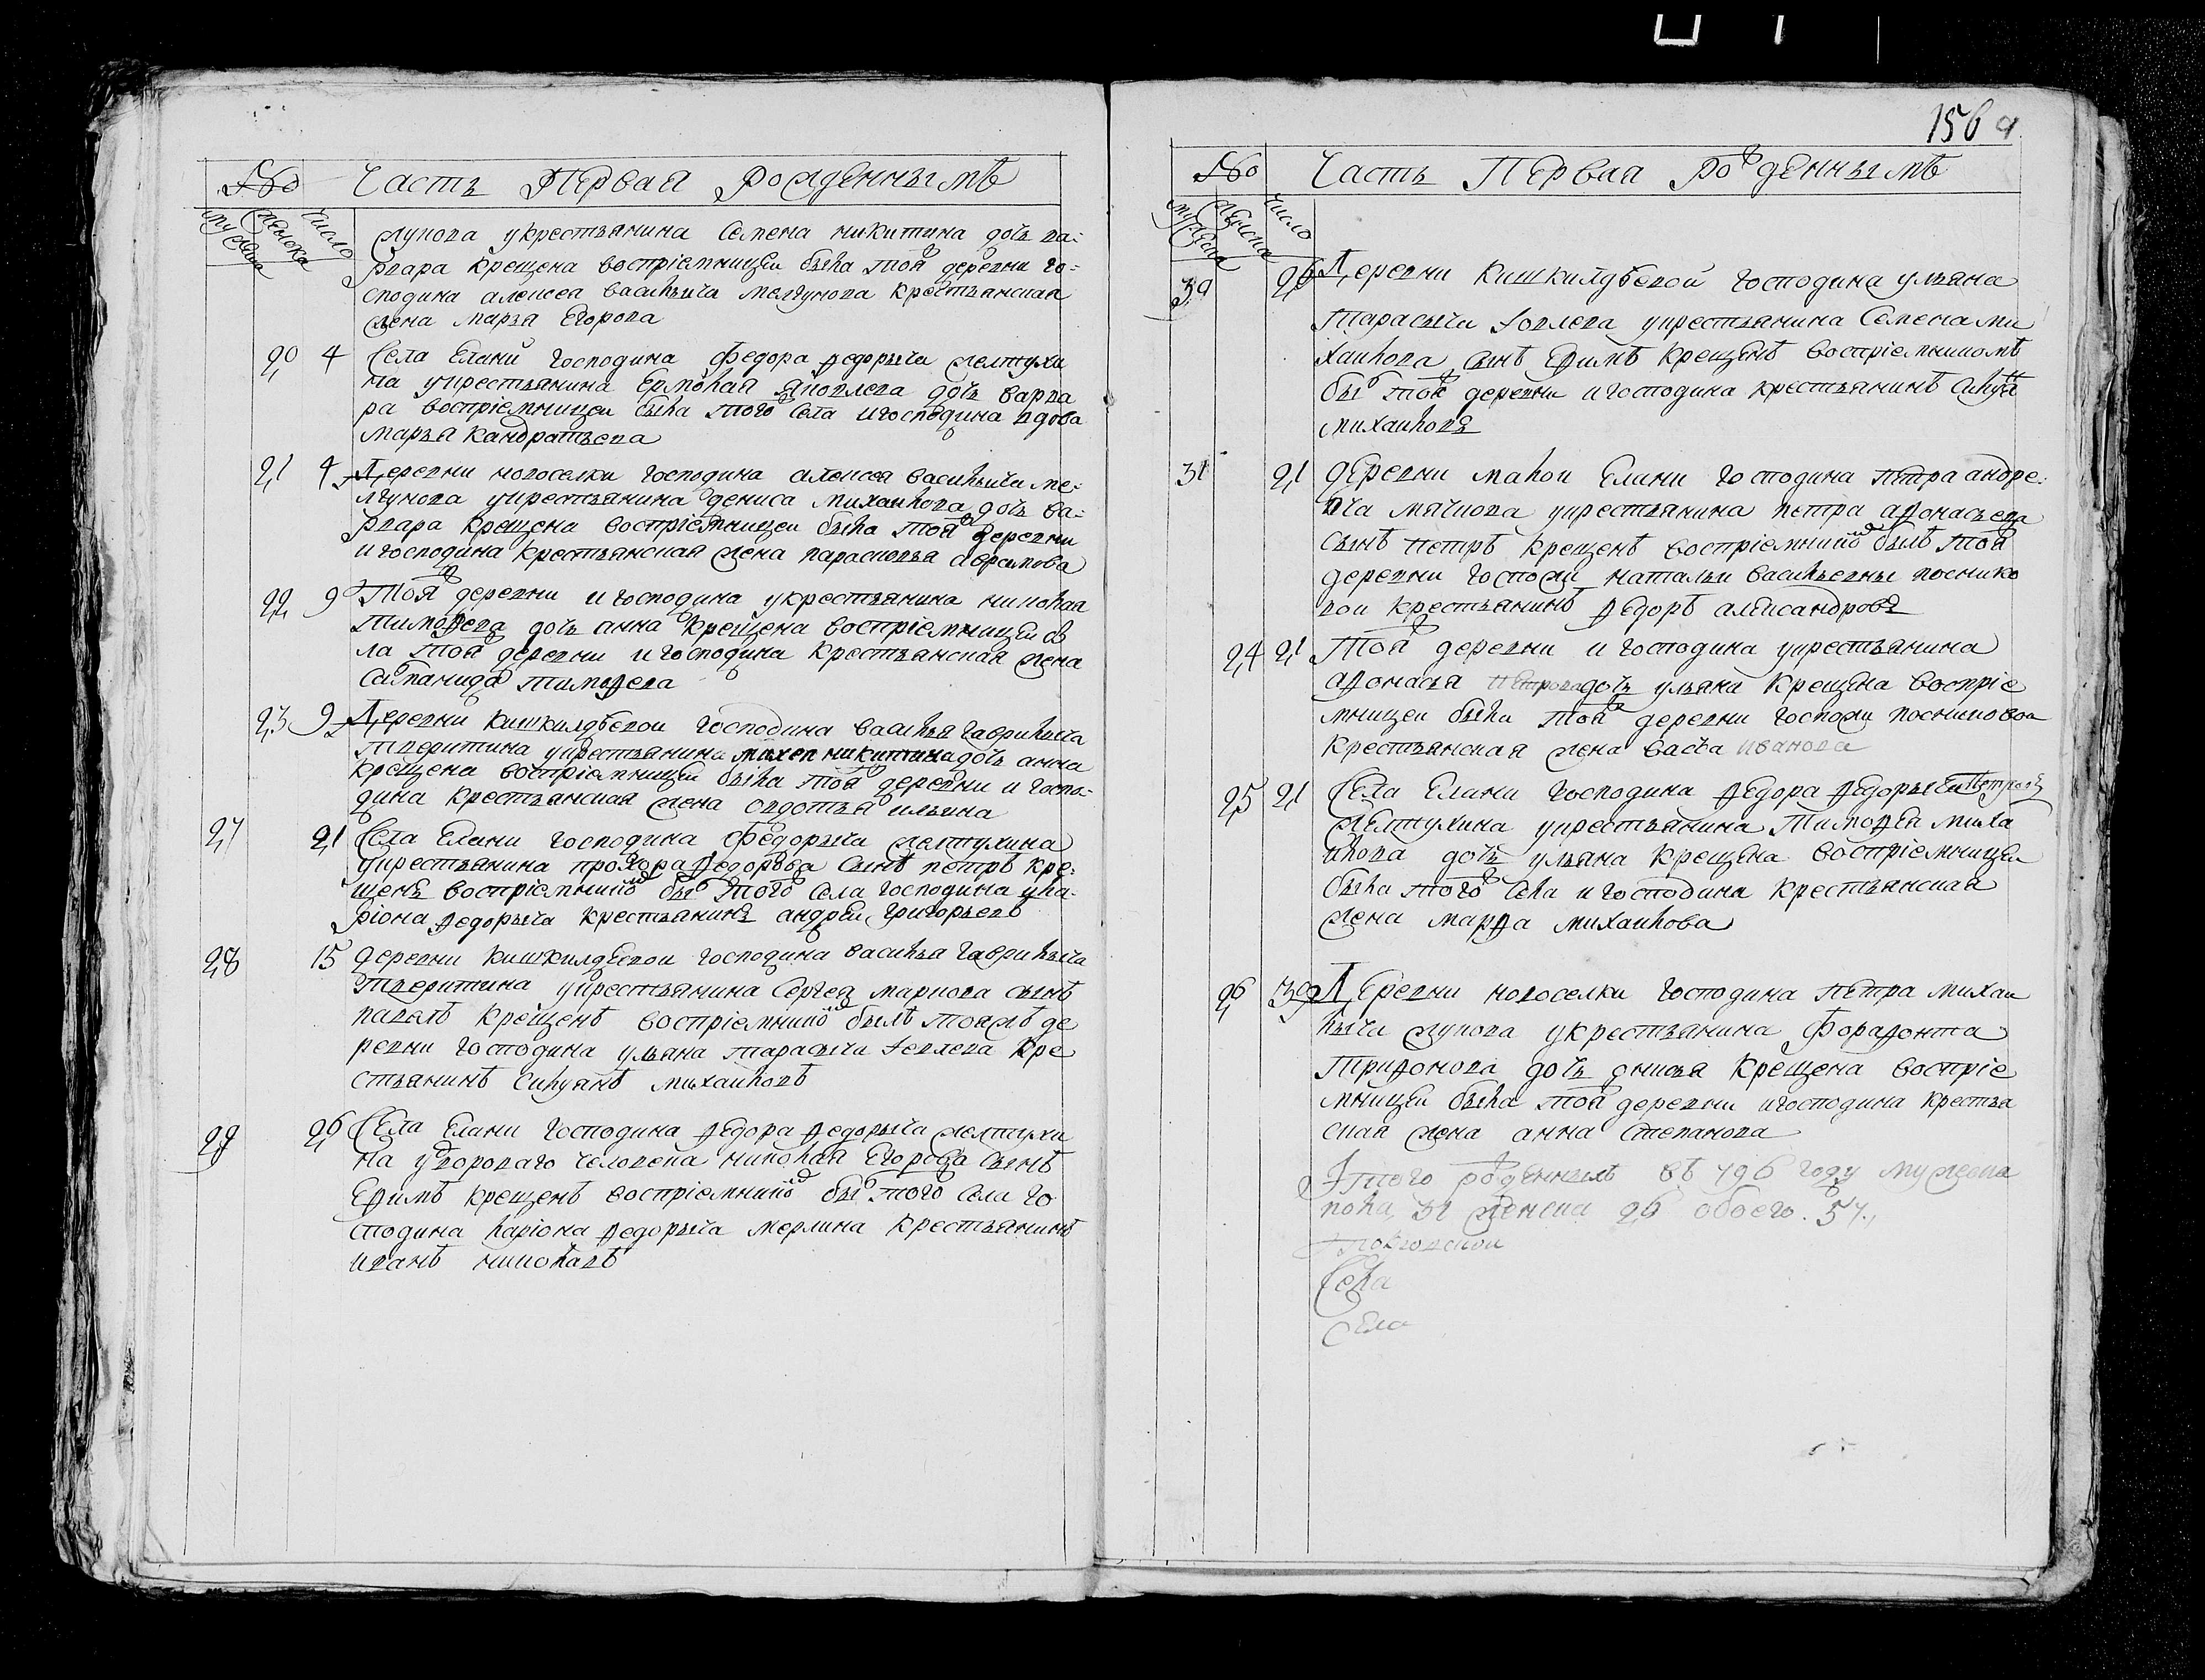 № Часть Первая рожденнымъ
мужска женска число
лукова укрестьянина Семена никитина дочь ва:
рвара крещена воспрiемницеи была той деревни го:
сподина алексея васильича мелгунова крестьянская
жена марья Егорова
20 4 Села Елани господина федора федорыча желтухи
на укрестьянина Ермолая яковлева дочь варва
ра воспрiемницеи была того села игосподина вдова
марья кандратьева
21 4 Деревни новоселки господина алексея васильича ме:
лгунова укрестьянина дениса михаилова дочь ва:
рвара крещена воспрiемницеи была той деревни
игосподина крестьянская жена парасковья аврамова
22 9 Той деревни и господина укрестьянина николая
тимофева дочь анна крещена воспрiемницеи бы
ла той деревни и господина крестьянская жена
Салпанида тимофева
23 9 Деревни кишкилдѣевой господина василья гаврилыча
тверитина укрестьянина михея никитина дочь анна
крещена воспрiемницеи была той деревни и госпо:
дина крестьянская жена овдотья ильина
27 21 Села Елани господина Федорыча желтухина
укрестьянина прохора федорова сынъ петръ кре:
щенъ воспрiемникомъ былъ того села господина ула:
рiона федорыча крестьянинъ андреи григорьевъ
28 15 деревни кишкилдеевои господина василья гаврилыча
тверитина укрестьянина Сергея маркова сынъ
павелъ крещенъ воспрiемникомъ былъ тояжъ де
ревни господина ульяна тарасыча кре
стьянинъ силуянъ михаиловъ
29 26 Села Елани господина федора федорыча желтухи
на удвороваго человека николая Егорова сынъ
Ефимъ крещенъ воспрiемникомъ былъ того села го
сподиналарiона федорыча мерлина крестьянинъ
иванъ николаевъ
156
№ Часть Первая рожденнымъ
мужска женска число
30 26 Деревни Кишкилдѣевой господина ульяна
тарасыча укрестьянина Семена ми
хаилова сынъ Ефимъ крещенъ воспрiемникомъ
былъ той деревни игосподина крестьянинъ силуян
михаиловъ
31 21 деревни малои Елани господина петра андре:
ича мячкова укрестьянина петра афонасьева
сынъ петръ крещенъ воспрiемникомъ былъ той
деревни госпожи натальи васильевны поснико
вои крестьянинъ федоръ александровъ
24 21 Той деревни и господина укрестьянина
афонасья петрова дочь ульяна крещена воспрiе
мницеи была той деревни госпожи посниковои
крестьянская жена васса иванова
25 21 Села Елани господина федора федорыча
желтухина укрестьянина тимофея миха
илова дочь ульяна крещена воспрiемницеи
была того села и господина крестьянская
жена марфа михаилова
26 30 Деревни новоселки господина петра михаи
лыча лукова укрестьянина форафонта
трифонова дочь онисья крещена воспрiе
мницеи была той деревни игосподина крестья
ская жена анна степанова
Итого рожденныхъ въ 796 году мужеска
пола 31 женска 26 обоего. 57.
Села
Села